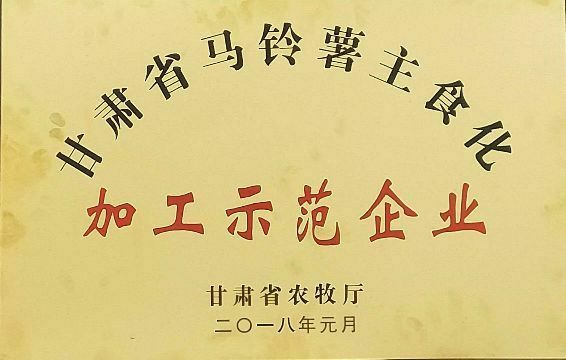 甘肃省马铃薯主食化
加工示范企业
甘肃省农牧厅
二〇一八年元月